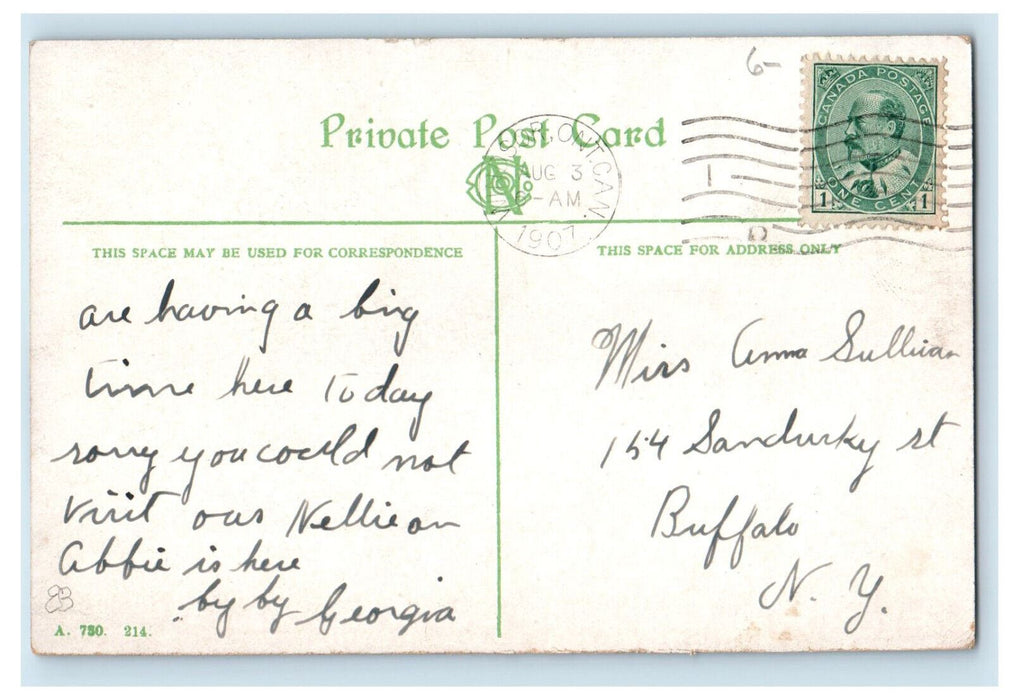 6-
CANADA POSTAGE
1 ONE CENT 1
Private Post Card
ONT. CAN.
AUG 3
-AM
1907
THIS SPACE MAY BE USED FOR CORRESPONDENCE
THIS SPACE FOR ADDRESS ONLY
are having a big
time here Today
sorry you coculd not
visit our Nellie an
abbie is here
by by Georgia
Miss Anna Sullivan
154 Sandusky st
Buffalo
N. Y.
A. 730. 214.